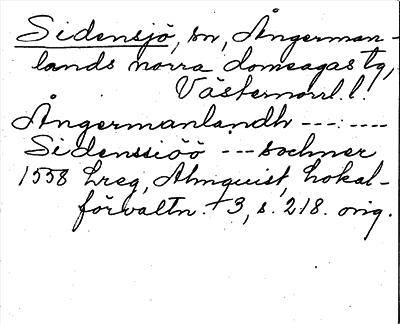 Sidensjö, sn, Ångerman-
lands norra domsagas tg,
Västernorrl. l.
Ångermanlandh ---:----
Sidenssiöö --- sochner
1558 Lreg, Almquist, Lokal-
förvaltn. 3, s. 218. orig.